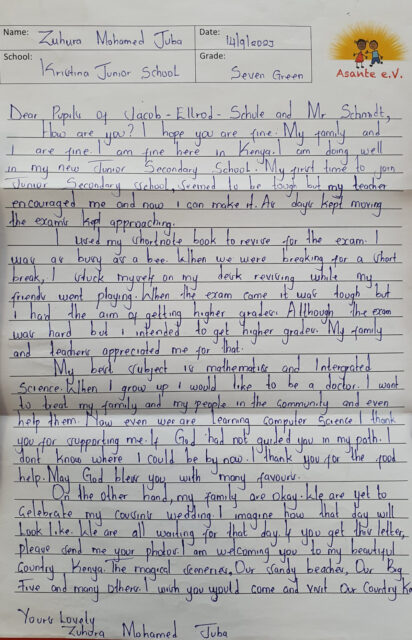 Name: Zuhura Mohamed Juba Date: 14/9/2023
School: Kristina Junior School Grade: Seven Green
Asante e.V.
Dear Pupils of Jacob-Ellrod-Schule and Mr Schmidt,
How are you? I hope you are fine. My family and
I are fine. I am fine here in Kenya. I am doing well
in my new Junior Secondary School. My first time to join
Junior Secondary School, seemed to be tough but my teacher
encouraged me and now I can make it. As days kept moving
the exams kept approaching.
I used my shortnote book to revise for the exam. I
was as busy as a bee. When we were breaking for a short
break, I stuck myself on my desk revising while my
friends went playing. When the exam came it was tough but
I had the aim of getting higher grades. Although the exam
was hard but I intended to get higher grades. My family
and teachers appreciated me for that.
My best subject is mathematics and Intergrated
Science. When I grow up I would like to be a doctor. I want
to treat my family and my people in the community and even
help them. Now even wer are learning computer Science. I thank
you for supporting me. If God had not guided you in my path. I
dont know where I could be by now. I thank you for the food
help. May God bless you with many favours.
On the other hand, my family are okay. We are yet to
celebrate my cousin's wedding. I imagine how that day will
look like. We are all waiting for that day. If you get this letter,
please send me your photos. I am welcoming you to my beautiful
country Kenya. The magical sceneries, Our sandy beaches, Our Big
Five and many others. I wish you would come and visit Our Country
Yours Lovely
Zuhura Mohamed Juba